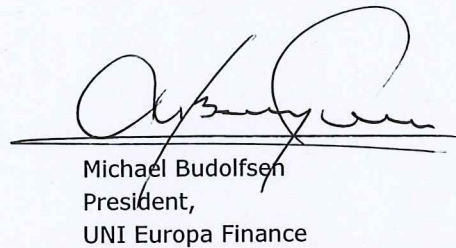 Michael Budolfsen
President,
UNI Europa Finance